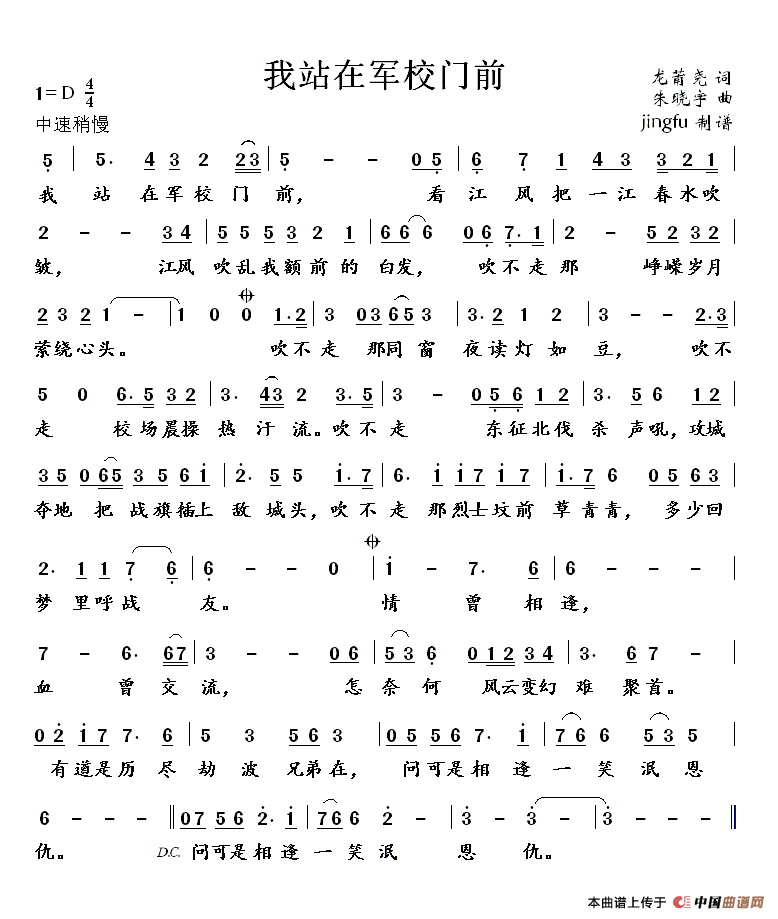 我站在军校门前
1=D 4/4
龙莆尧 词
朱晓宇 曲
中速稍慢
jingfu 制谱
5 5· 4 3 2 23 | 5 - - 05 | 6 7 1 43 321 |
我 站 在军校门 前， 看江 风把一江春水吹
2 - - 34 | 555321 | 666 06 7·1 | 2 - 5232 |
皱， 江风 吹乱我额前的白发， 吹不走那 峥嵘岁月
2321 - | 1 0 0 1·2 | 3 03653 | 3·212 | 3 - - 2·3 |
萦绕心头。 吹不走 那同窗 夜读灯如豆， 吹不
5 0 6·5 32 | 3· 432 3·5 | 3 - 056 12 | 3· 56 12 |
走 校场晨操 热汗流。吹不走 东征北伐 杀 声吼，攻城
35 065 3561 | 2· 55 1·7 | 6· 1 1·7 6·7 | 6 0563 |
夺地 把 战旗插上 敌 城头，吹不走 那烈士坟前 草青青， 多少回
2· 1176 | 6 - - 0 | 1 - 7· 6 | 6 - - - |
梦里呼战 友。 情 曾 相逢，
7 - 6· 67 | 3 - - 06 | 536 01234 | 3· 67 - |
血 曾 交流， 怎奈何 风云变幻 难 聚首。
02 177 7· 6 | 5 3 56 3 | 05567· 1 | 766 535 |
有道是历 尽劫 波 兄弟在， 问可是相 逢一笑 泯恩
6 - - - ‖ 07562·1 | 766 2 | 3 - 3 - | 3 - - - ‖
仇。 D.C. 问可是相逢一笑泯 恩 仇。
本曲谱上传于 中国曲谱网